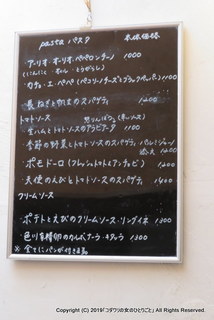 pasta パスタ 本体価格
・アーリオ・オーリオ・ペペロンチーノ 1000
(にんにく・オイル・とうがらし)
・カチョ・エ・ペペ (ペコリーノチーズとブラックペッパー) 1100
・長ねぎと のスパゲティ 1200
トマトソース
・生ハムとトマトソースのアラビアータ 1100
・季節の野菜とトマトソースのスパゲティ
・ポモドーロ (フレッシュトマトとアンチョビ) 1300
・天使のえびとトマトソースのスパゲティ 1400
クリームソース
・ポテトとえびのクリームソース・リングイネ 1300
・色川有精卵のカルボナーラ・キタッラ 1300
※ 全てにパンが付きます
Copyright (C) 2019「コダワリの女のひとりごと」 All Rights Reserved.